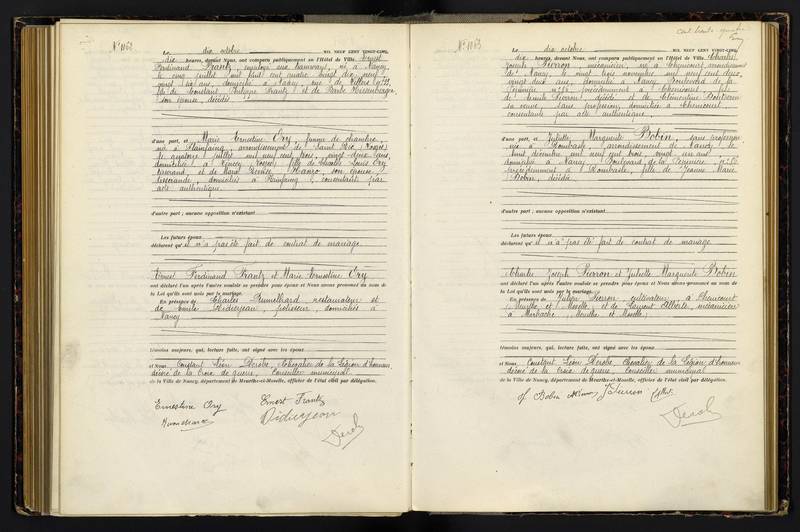 N° 1162
Le dix octobre MIL NEUF CENT VINGT-CINQ
dix heures, devant Nous, ont comparu publiquement en l'Hôtel de Ville Ernest
Ferdinand Frantz, employé aux tramways, né à Nancy,
le cinq juillet mil huit cent quatre vingt dix neuf,
vingt six ans, domicilié à Nancy, rue de
fils de Constant Philippe Frantz et de Barbe
son épouse, décédés
d'une part, et Marie Ernestine Ory, femme de chambre,
née à Plainfaing, arrondissement de Saint Dié (Vosges)
le quatorze juillet mil neuf cent trois, vingt deux ans,
domiciliée à (Vosges), fille de Charles Louis Ory
tisserand, et de Marie son épouse,
tisserande, domiciliés à Plainfaing, consentants par
acte authentique.
d'autre part ; aucune opposition n'existant
Les futurs époux
déclarent qu'il n'a pas été fait de contrat de mariage.
Ernest Ferdinand Frantz et Marie Ernestine Ory
ont déclaré l'un après l'autre vouloir se prendre pour époux et Nous avons prononcé au nom de
la Loi qu'ils sont unis par le mariage.
En présence de Charles et
de Emile Didierjean, domiciliés à
Nancy
témoins majeurs, qui, lecture faite, ont signé avec les époux
et Nous, Constant Léon Dérobe, Chevalier de la Légion d'honneur
décoré de la Croix de guerre, Conseiller municipal
de la Ville de Nancy, département de Meurthe-et-Moselle, officier de l'état civil par délégation.
Ernestine Ory Ernest Frantz
Didierjean
N° 1163
Le dix octobre MIL NEUF CENT VINGT-CINQ
dix heures, devant Nous, ont comparu publiquement en l'Hôtel de Ville Charles
Joseph Pierron, mécanicien, né à arrondissement
de Nancy, le vingt trois novembre mil neuf cent deux,
vingt deux ans, domicilié à Nancy, Boulevard de la
Pépinière précédemment à fils
de Pierron, décédé, et de Clémentine
sa veuve, sans profession, domiciliée à
consentante par acte authentique.
d'une part, et Juliette Marguerite Bobin, sans profession
née à Rombasle, arrondissement de Nancy, le
huit décembre mil neuf cent trois, vingt un ans,
domiciliée à Nancy, Boulevard de la Pépinière,
précédemment à Rombasle, fille de Jeanne Marie
Bobin, décédée.
d'autre part ; aucune opposition n'existant
Les futurs époux
déclarent qu'il n'a pas été fait de contrat de mariage
Charles Joseph Pierron et Juliette Marguerite Bobin
ont déclaré l'un après l'autre vouloir se prendre pour époux et Nous avons prononcé au nom de
la Loi qu'ils sont unis par le mariage.
En présence de Pierron, cultivateur à
(Meurthe et Moselle) et de Laurent mécanicien
à Marbache, (Meurthe et Moselle)
témoins majeurs, qui, lecture faite, ont signé avec les époux
et Nous, Constant Léon Dérobe, Chevalier de la Légion d'honneur
décoré de la Croix de guerre, Conseiller municipal
de la Ville de Nancy, département de Meurthe-et-Moselle, officier de l'état civil par délégation.
J Bobin Pierron